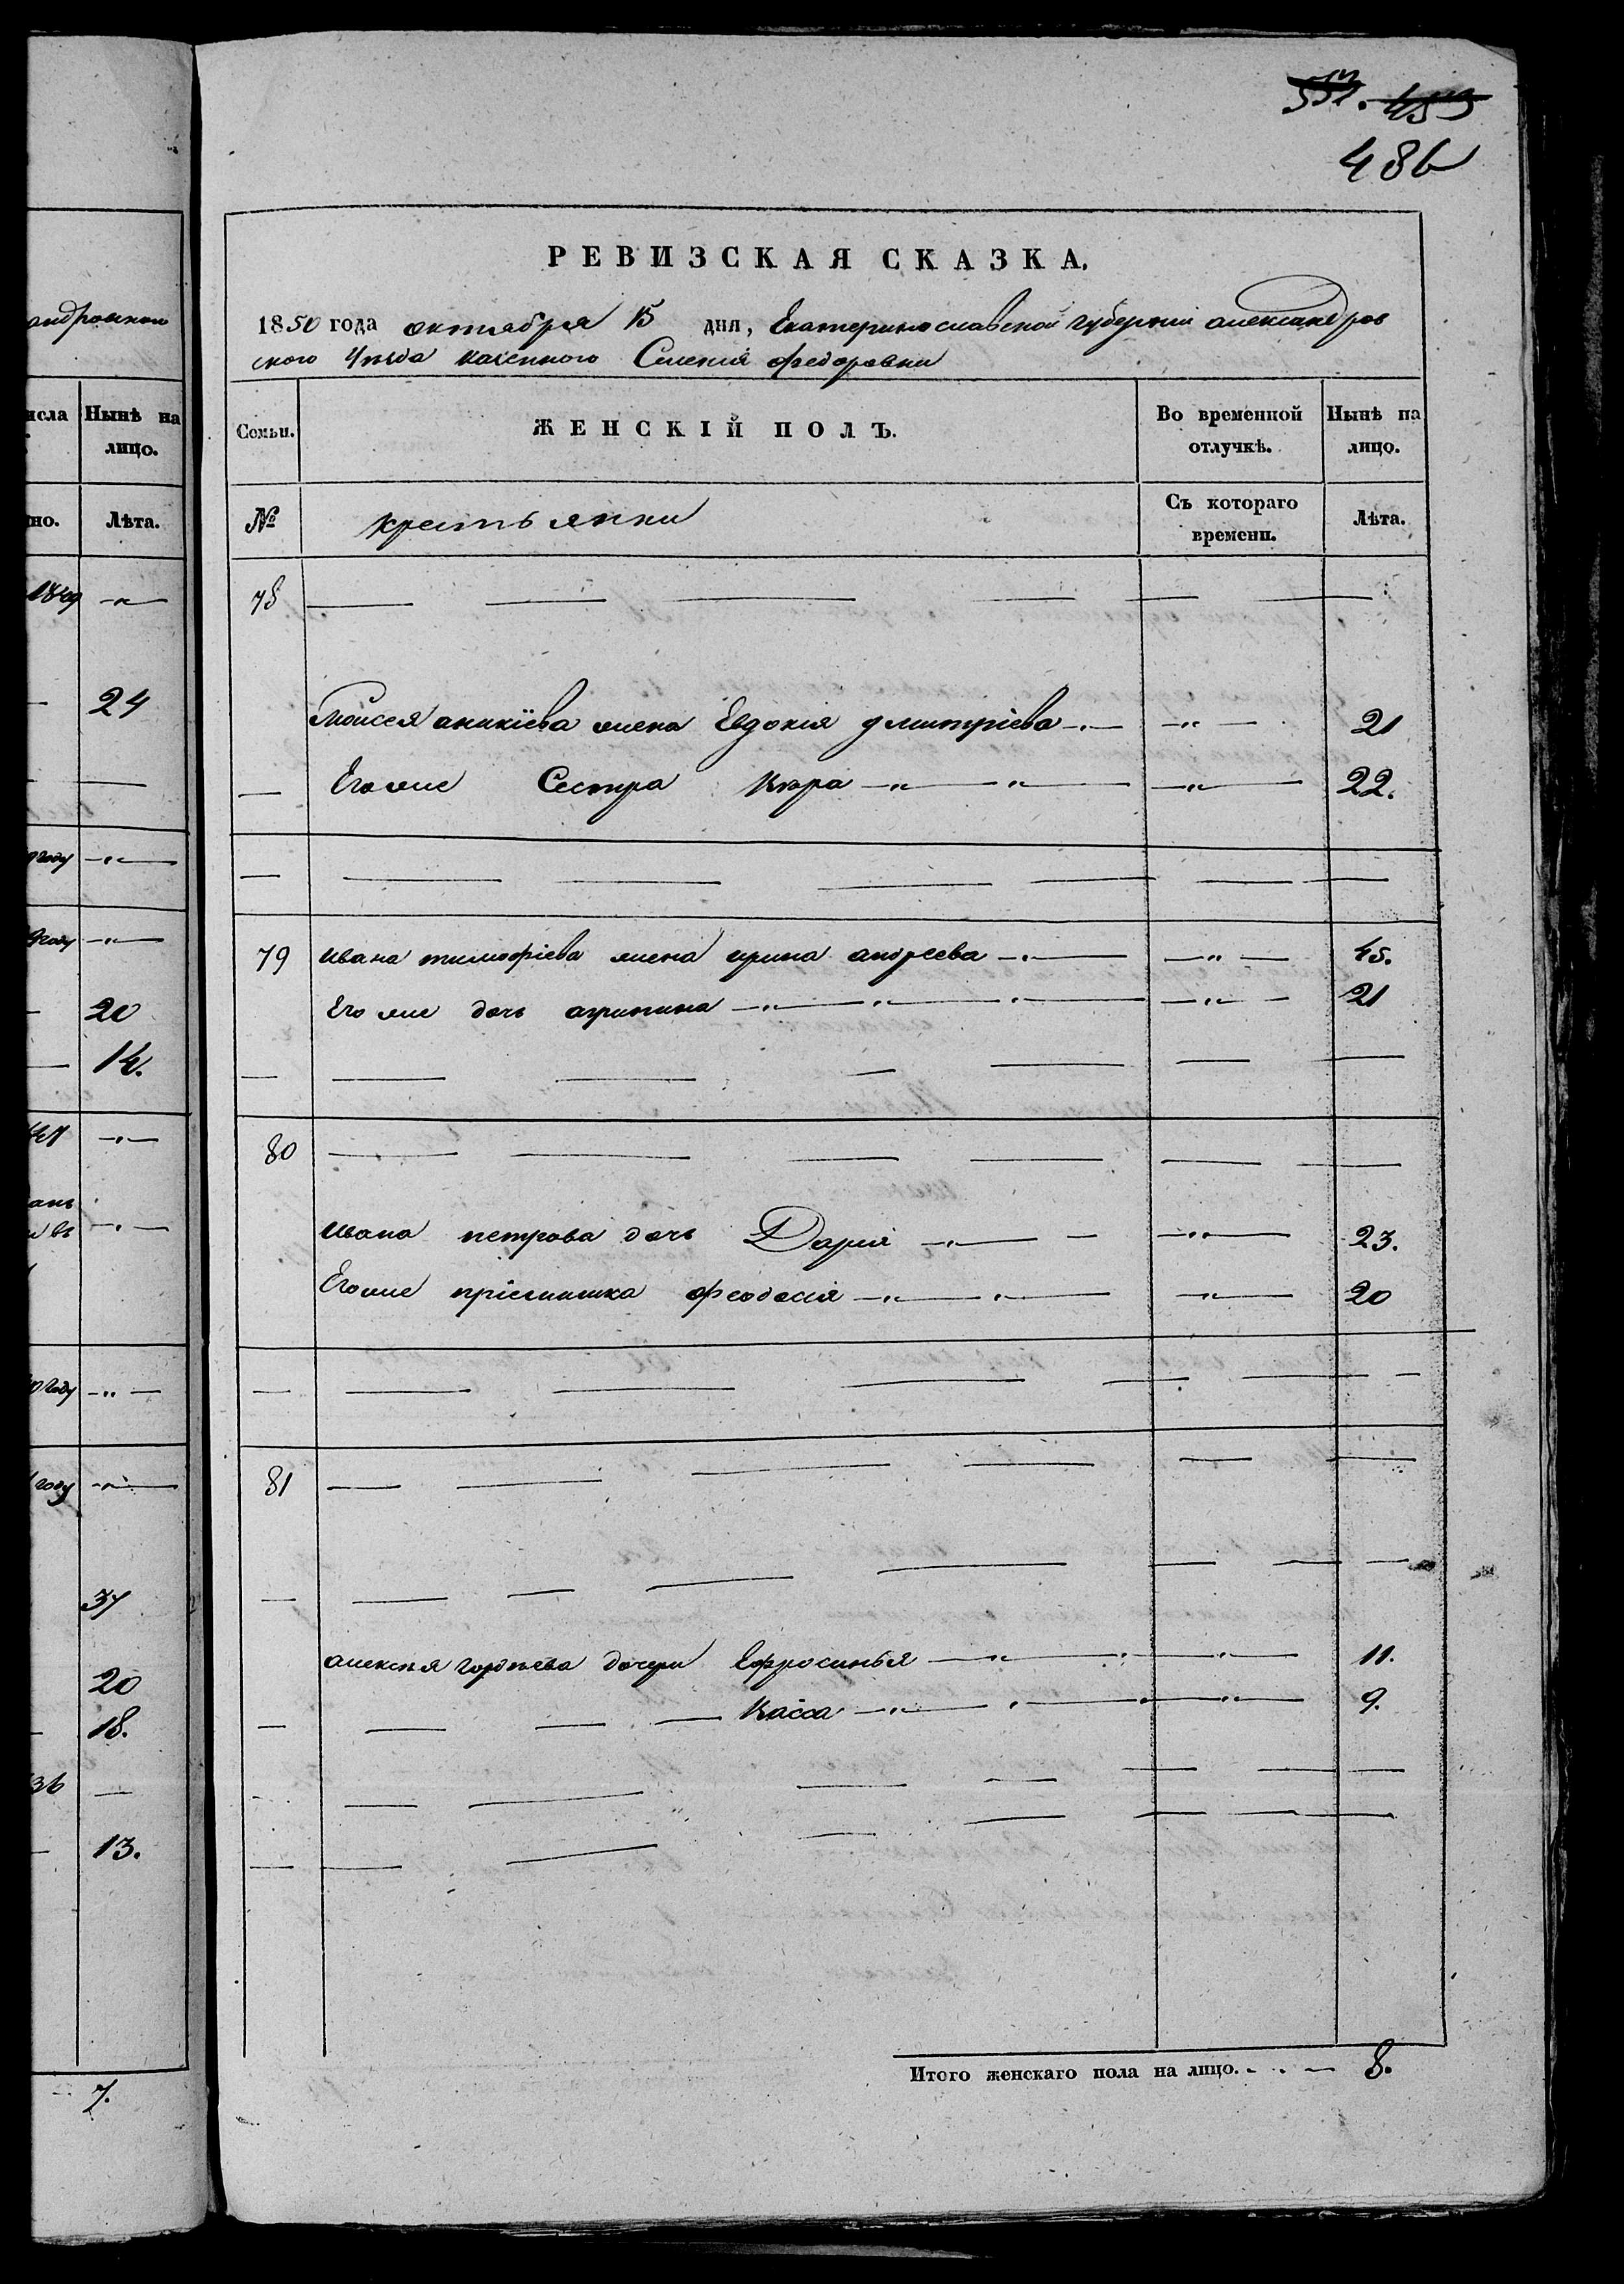 андровской
исла Нынѣ на
лицо.
но. Лѣта.
1849
24
году
году
20
14.
анъ
и въ
году
году
37
20
18.
36
13.
7.
486
РЕВИЗСКАЯ СКАЗКА.
1850 года октября 15 дня, Екатеринославской губерніи александров
ского уѣзда казенного Селенія федоровки
Семьи. ЖЕНСКІЙ ПОЛЪ. Во временной отлучкѣ. Нынѣ на лицо.
№ крестьянки Съ котораго времени. Лѣта.
78
Моисея аникіева жена Евдокія дмитріева 21
Его же Сестра Кира 22.
79 ивана тимофіева жена ирина андреева 45.
Его же дочь агрипина 21
80
ивана петрова дочь Дарія 23.
Его же пріемышка феодосія 20
81
алексѣя гордѣева дочери Ефросинья 11.
Васса 9.
Итого женскаго пола на лицо. 8.